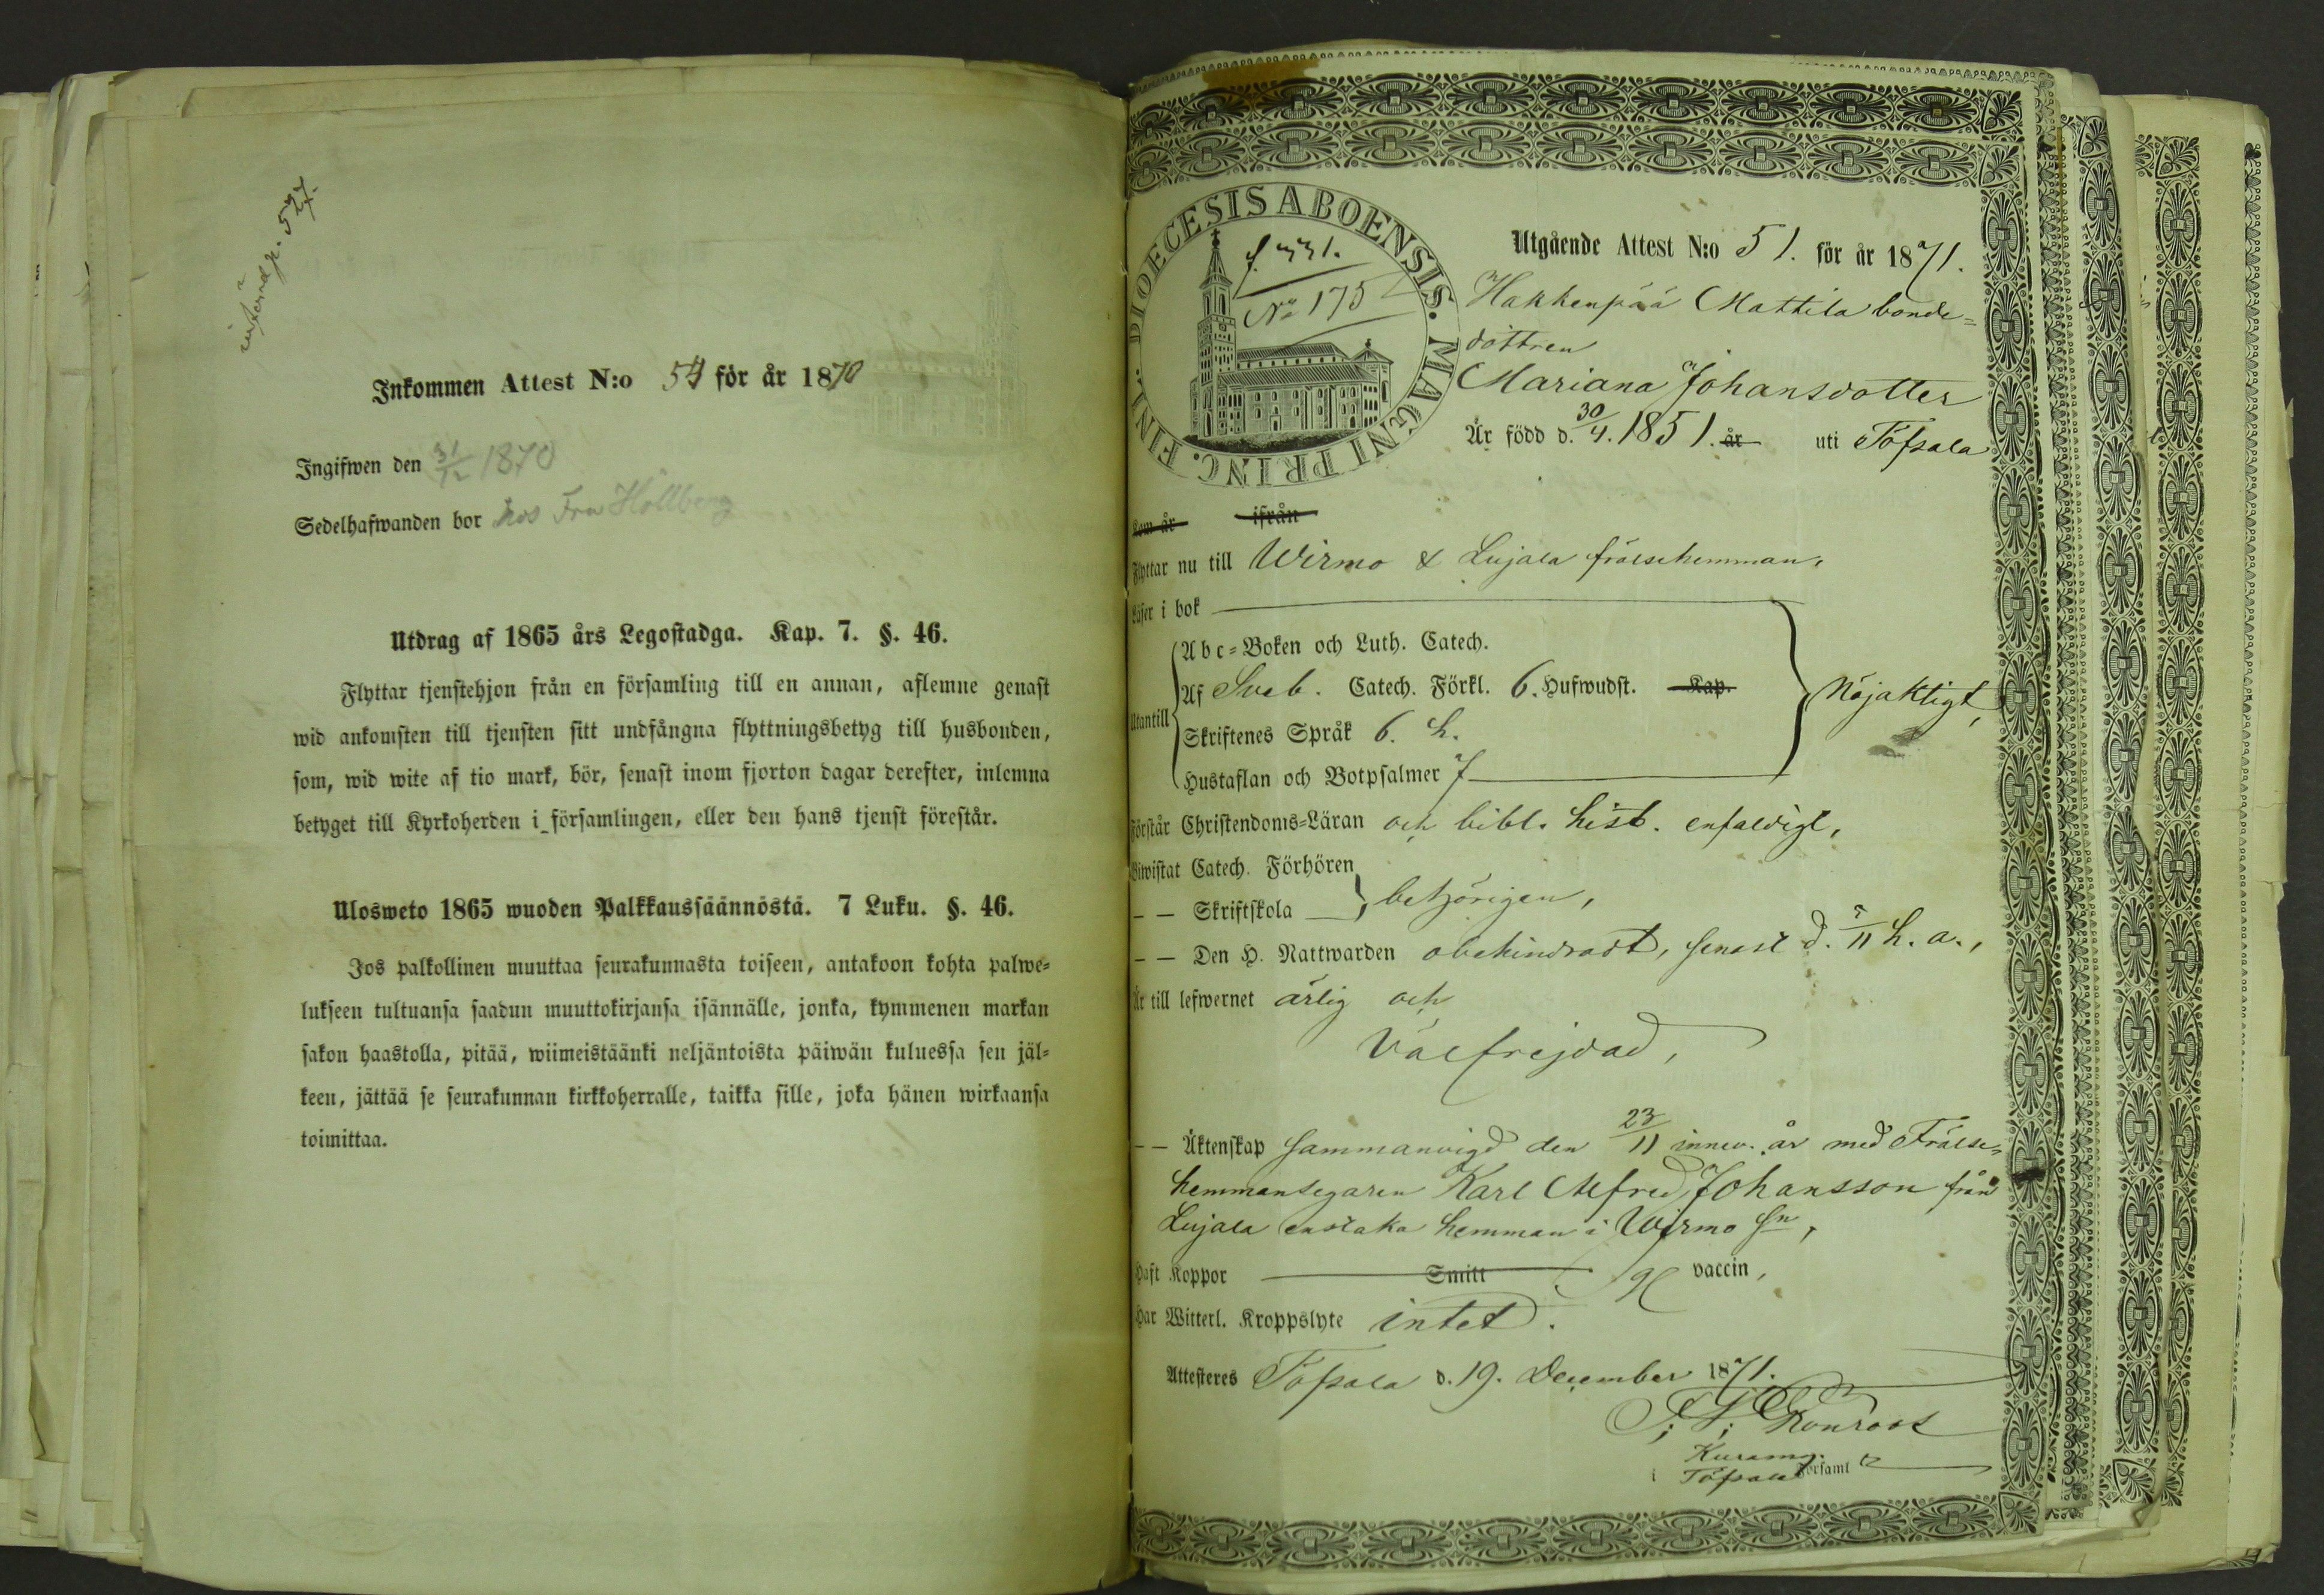 införd p. 527.
Inkommen Attest N:o 54 för år 1870
Ingifwen den 31/12 1870
Sedelhafwanden bor hos Fru Höllberg
Utdrag af 1865 års Legostadga. Kap. 7. §. 46.
Flyttar tjenstehjon från en församling till en annan, aflemne genast
wid ankomsten till tjensten sitt undfångna flyttningsbetyg till husbonden,
som, wid wite af tio mark, bör, senast inom fjorton dagar derefter, inlemna
betyget till Kyrkoherden i församlingen, eller den hans tjenst förestår.
Ulosweto 1865 wuoden Palkkaussäännöstä. 7 Luku. §. 46.
Jos palkollinen muuttaa seurakunnasta toiseen, antakoon kohta palwe=
lukseen tultuansa saadun muuttokirjansa isännälle, jonka, kymmenen markan
sakon haastolla, pitää, wiimeistäänki neljäntoista päiwän kuluessa sen jäl=
keen, jättää se seurakunnan kirkkoherralle, taikka sille, joka hänen wirkaansa
toimittaa.
DIOECESIS ABOENSIS. MAGNI PRINC. FINL.
f. 331.
No 175
Utgående Attest N:o 51. för år 1871.
Hakkenpää Mattila bonde=
dottren
Mariana Johansdotter
Är född d. 30/4. 1851. år uti Töfsala
Kom år ifrån
Flyttar nu till Wirmo & Lujala frälsehemman,
Läser i bok
Abc=Boken och Luth. Catech.
Af Sveb. Catech. Förkl. 6. Hufwudst. Kap.
Utantill
Skriftenes Språk 6. h.
Hustaflan och Botpsalmer 7
Nöjaktigt,
Förstår Christendoms=Läran och bibl. hist. enfaldigt,
Biwistat Catech. Förhören
– – Skriftskola behörigen,
– – Den H. Nattwarden obehindradt, senast d. 5/11 h. a.,
Är till lefwernet ärlig och
Välfrejdad,
– – Äktenskap sammanvigd den 23/11 innev. år med Frälse=
hemmansegaren Karl Alfred Johansson från
Lujala enstaka hemman i Wirmo sn,
Haft Koppor Smitt vaccin,
Har Witterl. Kroppslyte intet.
Attesteres Töfsala d. 19. December 1871.
Konroos
i Töfsala Församl